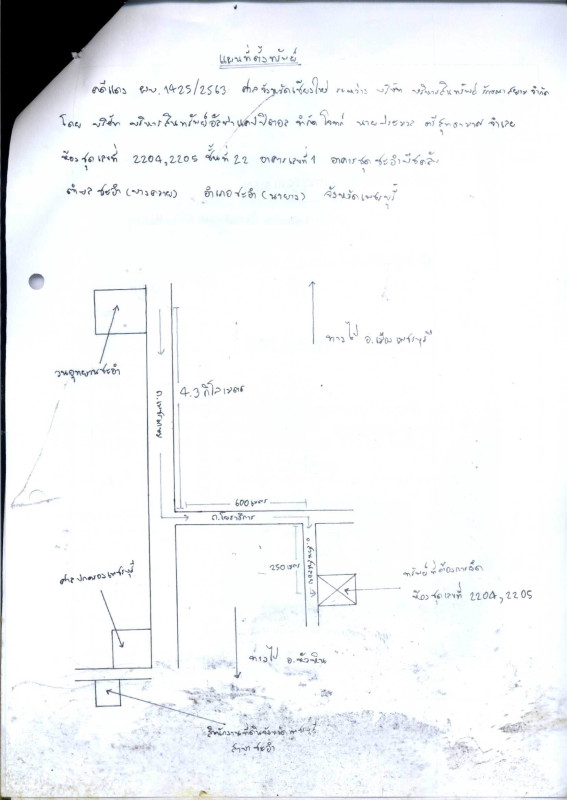 แผนที่ตั้งทรัพย์
คดีแดง ผบ.1425/2563 ศาลจังหวัดเชียงใหม่ ระหว่าง บริษัท บริหารสินทรัพย์ รักษาสยาม จำกัด
โดย บริษัท บริหารสินทรัพย์อัลฟาแคปปิตอล จำกัด โจทก์ นายประมวล จำเลย
ห้องชุดเลขที่ 2204,2205 ชั้นที่ 22 อาคารเลขที่ 1 อาคารชุด ชะอำ
ตำบล ชะอำ (บางควาย) อำเภอ ชะอำ (นายาง) จังหวัดเพชรบุรี
ทางไป อ.เมือง เพชรบุรี
วนอุทยานชะอำ
4.3 กิโลเมตร
ถ.เพชรเกษม
600 เมตร
ถ.
250 เมตร
ทรัพย์ที่ต้องการยึด
ห้องชุดเลขที่ 2204,2205
ศาลปกครองเพชรบุรี
ทางไป อ.หัวหิน
สำนักงานที่ดินจังหวัดเพชรบุรี
สาขา ชะอำ